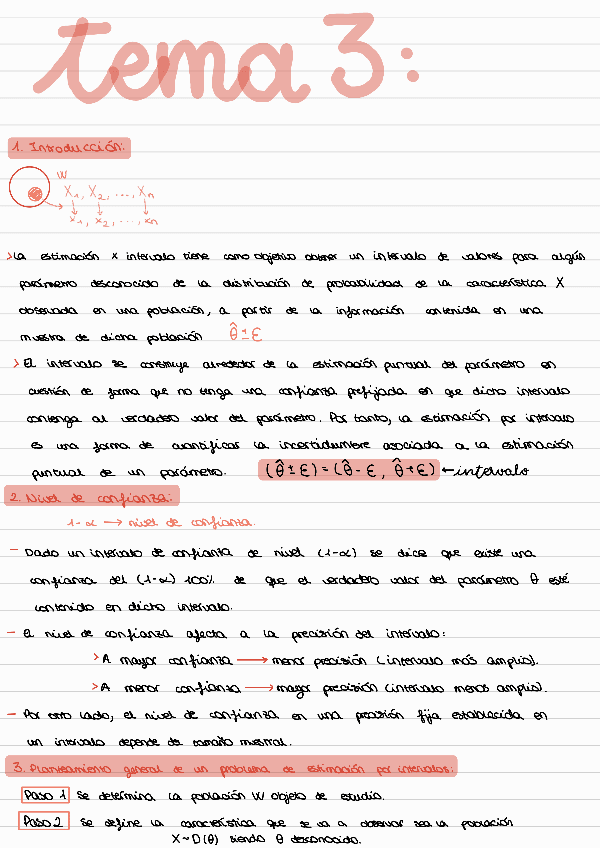 tema 3:
1. Introducción:
W
X1, X2, ..., Xn
x1, x2, ..., xn
> La estimación x intervalo tiene como objetivo obtener un intervalo de valores para algún
parámetro desconocido de la distribución de probabilidad de la característica X
observada en una población, a partir de la información contenida en una
muestra de dicha población θ̂ ± ε
> El intervalo se construye alrededor de la estimación puntual del parámetro en
cuestión de forma que no tenga una confianza prefijada en que dicho intervalo
contenga al verdadero valor del parámetro. Por tanto, la estimación por intervalo
es una forma de cuantificar la incertidumbre asociada a la estimación
puntual de un parámetro. (θ̂ ± ε) = (θ̂ - ε, θ̂ + ε) ← intervalo
2. Nivel de confianza:
1-α → nivel de confianza.
- Dado un intervalo de confianza de nivel (1-α) se dice que existe una
confianza del (1-α) 100% de que el verdadero valor del parámetro θ esté
contenido en dicho intervalo.
- El nivel de confianza afecta a la precisión del intervalo:
> A mayor confianza → menor precisión (intervalo más amplio).
> A menor confianza → mayor precisión (intervalo menos amplio).
- Por otro lado, el nivel de confianza en una precisión fija establecida en
un intervalo depende del tamaño muestral.
3. Planteamiento general de un problema de estimación por intervalos:
Paso 1 Se determina la población W objeto de estudio.
Paso 2 Se define la característica que se va a observar sea la población
X~D(θ) siendo θ desconocido.